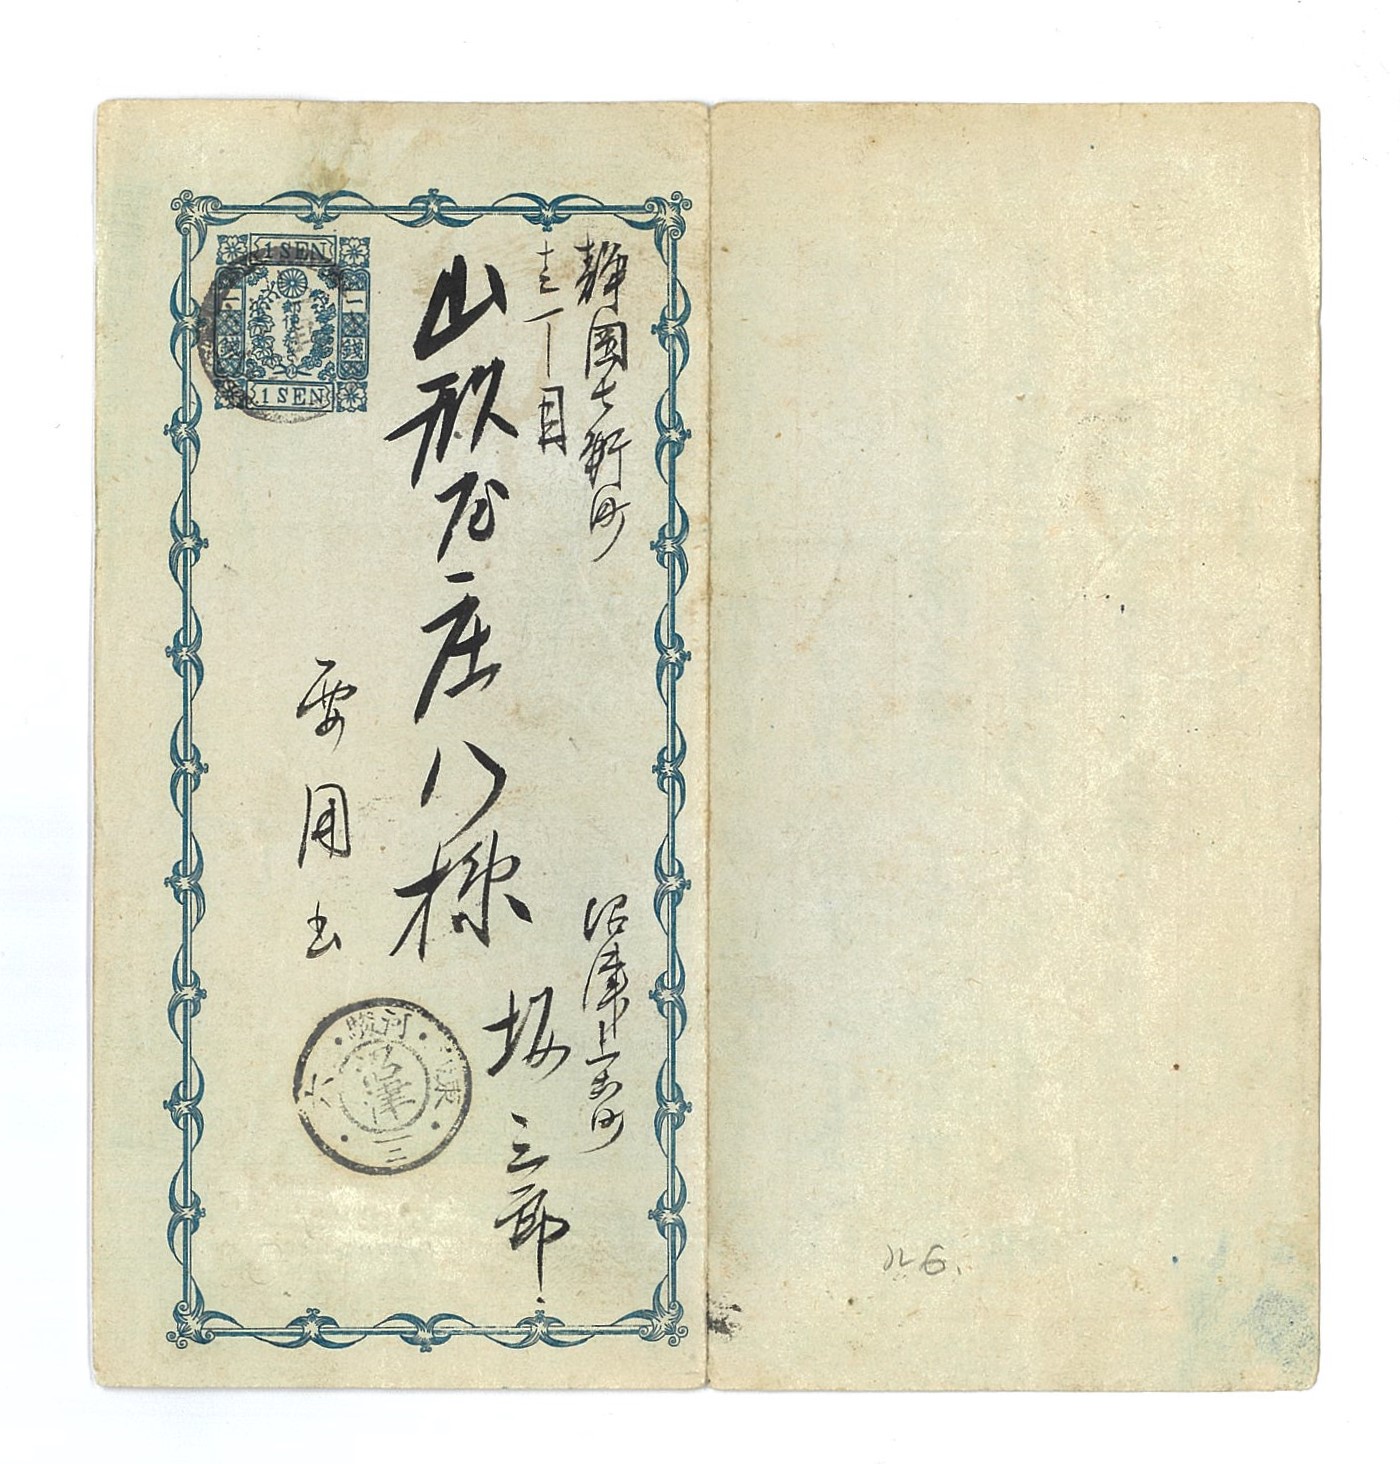 静岡七軒町
壱丁目
山形屋庄八様
沼津上本町
坂三郎
要用書
1 SEN
一銭
郵便
一銭
1 SEN
駿河
沼津
三